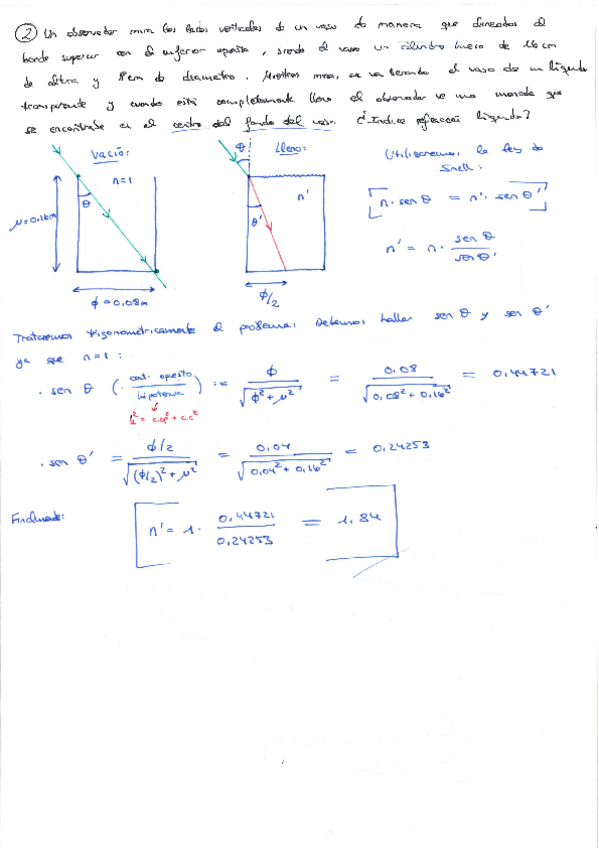 ② Un observador mira los lados verticales de un vaso de manera que alineados el
borde superior con el inferior opuesto, siendo el vaso un cilindro hueco de 16 cm
de altura y 8 cm de diametro. Mientras mira, se va llenando el vaso de un líquido
transparente y cuando está completamente lleno el observador ve una moneda que
se encontraba en el centro del fondo del vaso. ¿Indice refracción líquido?
Vacío:
n=1
θ
μ=0.16m
φ = 0,08m
Lleno:
θ
n'
θ'
φ/2
Utilizaremos la ley de
Snell:
n · sen θ = n' · sen θ'
n' = n · sen θ / sen θ'
Trataremos trigonométricamente el problema: Debemos hallar sen θ y sen θ'
ya que n=1 :
· sen θ (· cat. opuesto / hipotenusa) := φ / √(φ² + μ²) = 0,08 / √(0,08² + 0,16²) = 0,44721
h² = c.op² + c.c²
· sen θ' = φ/2 / √((φ/2)² + μ²) = 0,04 / √(0,04² + 0,16²) = 0,24253
Finalmente:
n' = 1 · 0,44721 / 0,24253 = 1,84